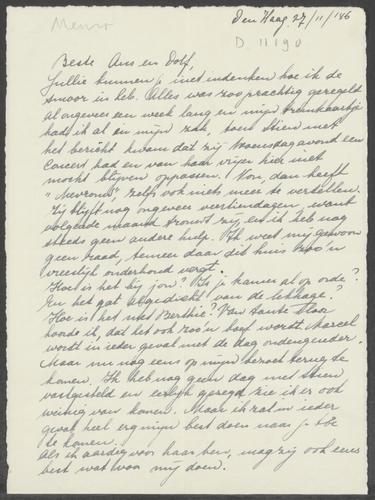 Mevro
Den Haag, 27/11/'46
D 1190
Beste Ans en Dolf,
Jullie kunnen je niet indenken hoe ik de
smoor in heb. Alles was zoo prachtig geregeld
al ongeveer een week lang en mijn treinkaartje
had ik al en mijn zak, toen Stien met
het bericht kwam dat zij Woensdagavond een
Concert had en van haar vrijer hier niet
mocht blijven oppassen. Nou, dan heeft
"Mevrouw", zelfs ook niets meer te vertellen.
Zij blijft nog ongeveer veertiendagen, want
volgende maand trouwt zij, en ik heb nog
steeds geen andere hulp. Ik weet mij gewoon
geen raad, temeer daar dit huis zoo'n
vreeselijk onderhoud vergt.
Hoe is het bij jou? Is je kamer al op orde?
En het gat afgedicht van de lekkage?
Hoe is het met Bertsie? Van tante
hoorde ik, dat het ook zoo'n wordt. Marcel
wordt in ieder geval met de dag ondeugender.
Maar nu nog eens op mijn bezoek terug te
komen. Ik heb nog geen dag met Stien
vastgesteld en eerlijk gezegd zie ik er ook
weinig van komen. Maar ik zal in ieder
geval heel erg mijn best doen naar je toe
te komen.
Als ik aardig voor haar ben, mag zij ook eens
best wat voor mij doen.